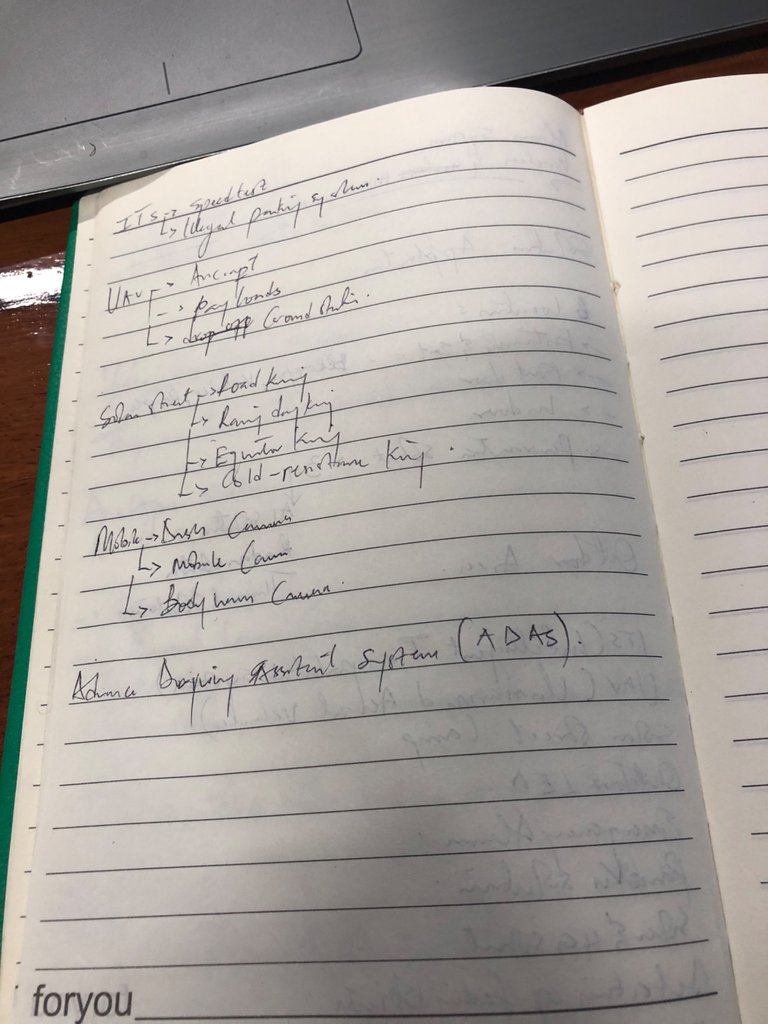 ITS → Speed test
↳ Illegal parking system.
UAV → Aircraft
→ payloads
↳ Ground station.
Solar street → Road King
↳ Rainy day King
↳ Equator King
↳ Cold-resistance King.
Mobile → Dash Camera
↳ Mobile Camera
↳ Body worn Camera.
Advance Assistant System (ADAS).
foryou